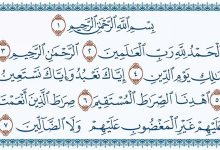 بِسْمِ اللَّهِ الرَّحْمَٰنِ الرَّحِيمِ ١
الْحَمْدُ لِلَّهِ رَبِّ الْعَالَمِينَ ٢ الرَّحْمَٰنِ الرَّحِيمِ ٣
مَالِكِ يَوْمِ الدِّينِ ٤ إِيَّاكَ نَعْبُدُ وَإِيَّاكَ نَسْتَعِينُ
٥ اهْدِنَا الصِّرَاطَ الْمُسْتَقِيمَ ٦ صِرَاطَ الَّذِينَ أَنْعَمْتَ
عَلَيْهِمْ غَيْرِ الْمَغْضُوبِ عَلَيْهِمْ وَلَا الضَّالِّينَ ٧